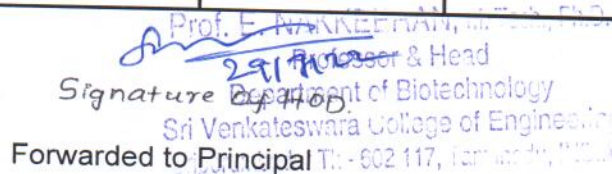 Prof. E. NAKKEERAN, M.Tech., Ph.D.
Professor & Head
Signature of HOD.
Department of Biotechnology
Sri Venkateswara College of Engineering
Forwarded to Principal
- 602 117,